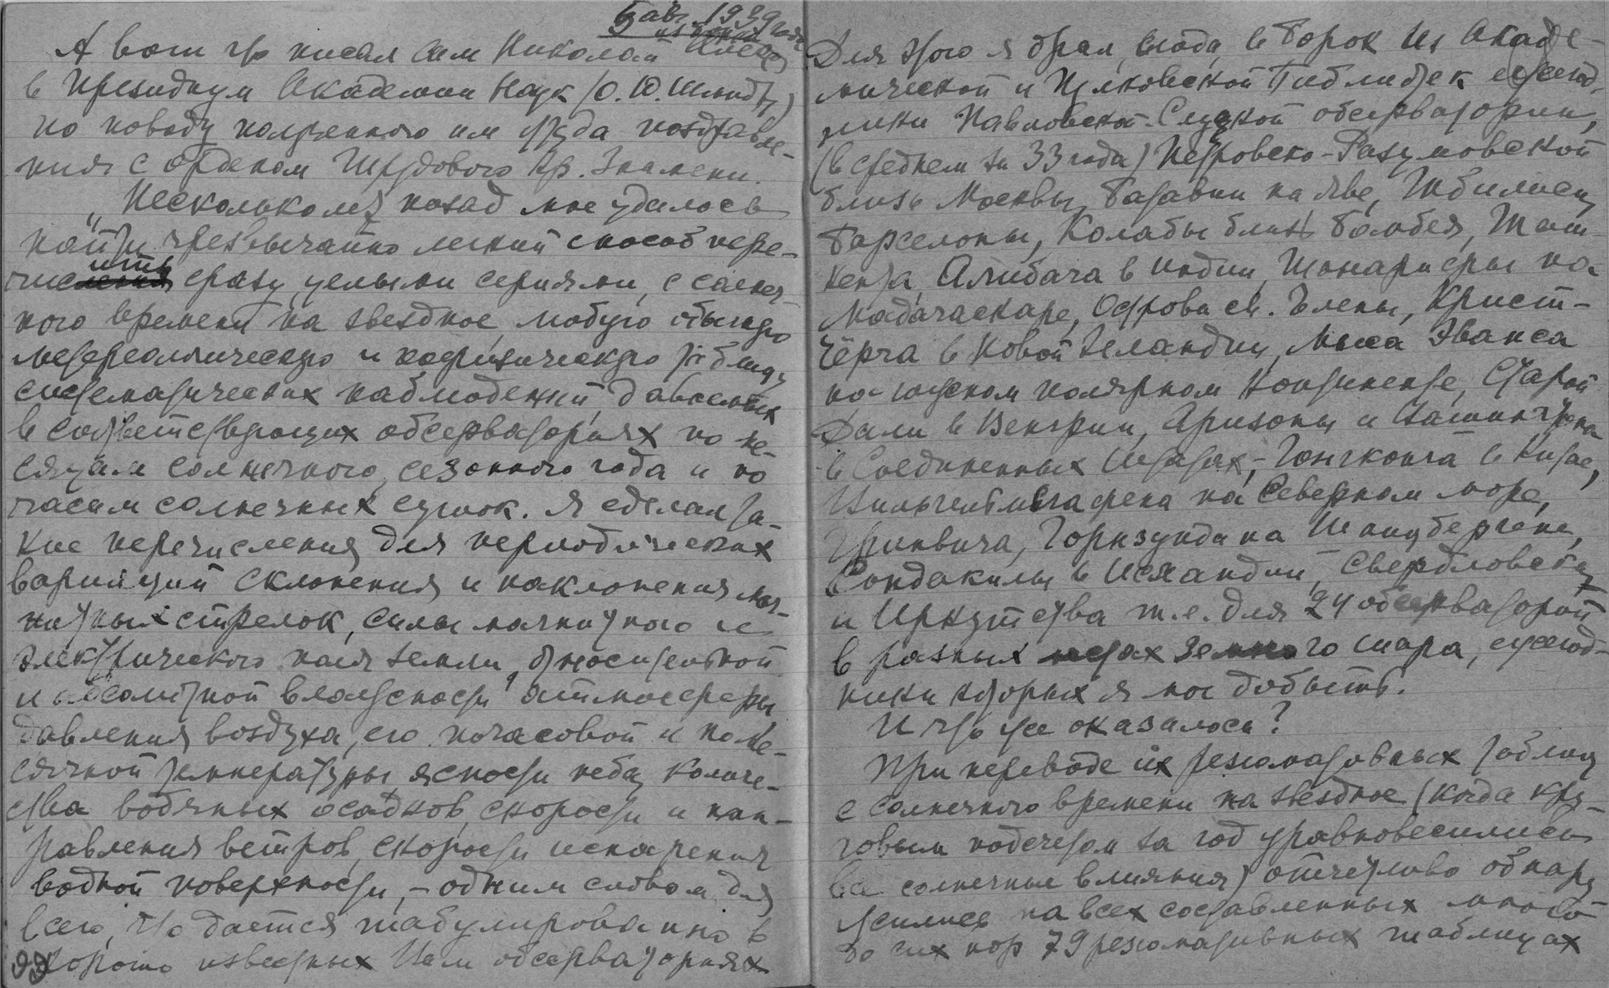 5 авг. 1939 года
А вот что писал сам Николай Алекс.
в Президиум Академии Наук (О. Ю. Шмидту)
по поводу полученного им оттуда поздравле-
ния с орденом Трудового Кр. Знамени.
„Несколько лет назад мне удалось
найти чрезвычайно легкий способ пере-
числить сразу целыми сериями, с солнеч-
ного времени на звездное, любую обычную
метеорологическую и геофизическую таблицу
систематических наблюдений, даваемых
в соответствующих обсерваториях по ме-
сяцам солнечного, сезонного года и по
часам солнечных суток. Я сделал та-
кие перечисления для периодических
вариаций склонения и наклонения маг-
нитных стрелок, силы магнитного и
электрического поля земли, относительной
и абсолютной влажности атмосферы,
давления воздуха, его почасовой и поме-
сячной температуры, ясности неба, количе-
ства водяных осадков, скорости и нап-
равления ветров, скорости испарения
водной поверхности, – одним словом, для
всего, что дается табулировано в
хорошо известных Вам обсерваториях
99
Для этого я брал, сюда, в Борок из Акаде-
мической и Пулковской библиотек ежегод-
ники Павловской-Слуцкой обсерватории,
(в среднем за 33 года) Петровско-Разумовской
близь Москвы, Батавии на Яве, Тбилиси,
Барселоны, Колабы близь Бомбея, Таш-
кента, Алибага в Индии, Тананариевы на
Мадагаскаре, Острова св. Елены, Крист-
чёрча в Новой Зеландии, мыса Эванса
на южном полярном континенте, Старой
Дали в Венгрии, Аризоны и Вашингтона
в Соединенных Штатах, – Гонгконга в Китае,
Вильгельмсгафена на Северном море,
Гринвича, Горнзунда на Шпицбергене,
в Исландии, Свердловска
и Иркутства т.е. для 24 обсерваторий
в разных местах земного шара, ежегод-
ники которых я мог добыть.
И что же оказалось?
При переводе их результативных таблиц
с солнечного времени на звездное (когда кру-
говым подсчетом за год уравновесились
все солнечные влияния) отчетливо обнару-
жились на всех составленных мною
до сих пор 79 результативных таблицах